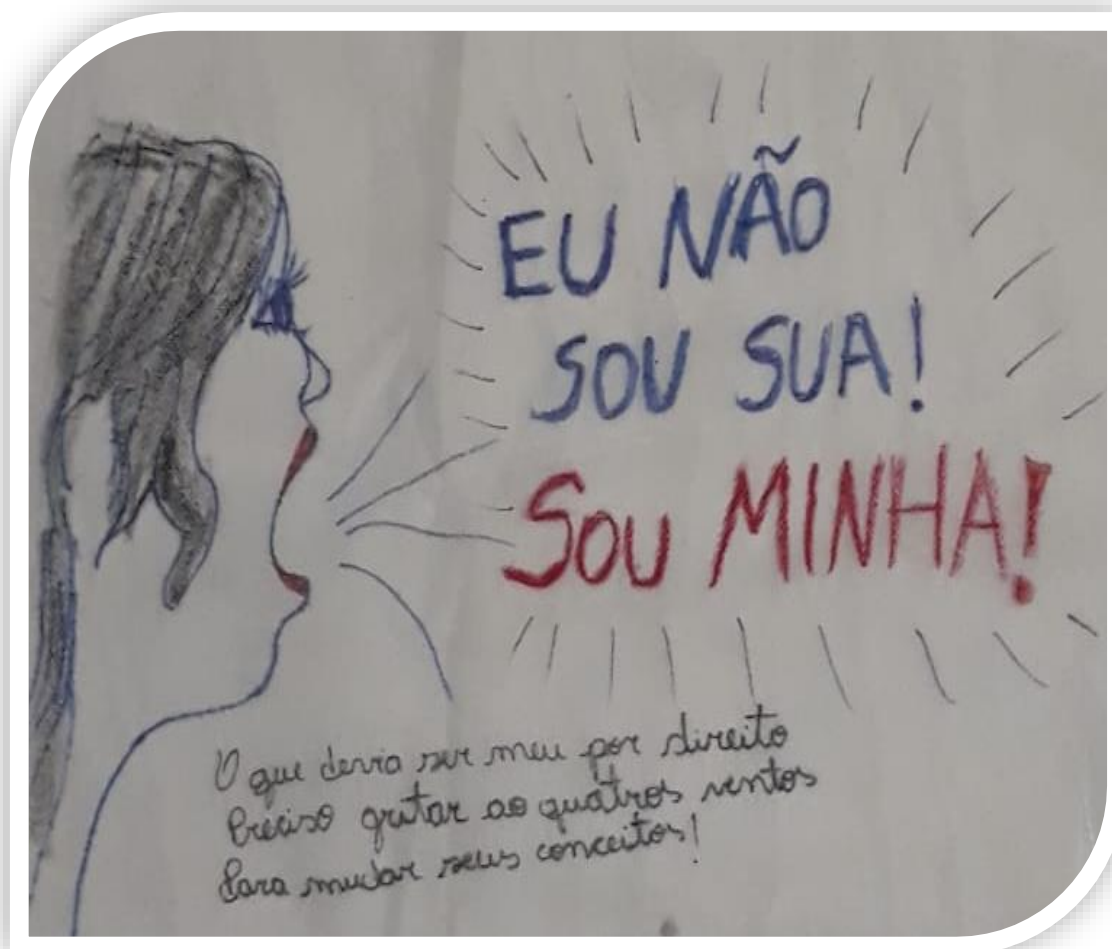 EU NÃO
SOU SUA!
SOU MINHA!
O que devia ser meu por direito
Preciso gritar ao quatros ventos
Para mudar seus conceitos!